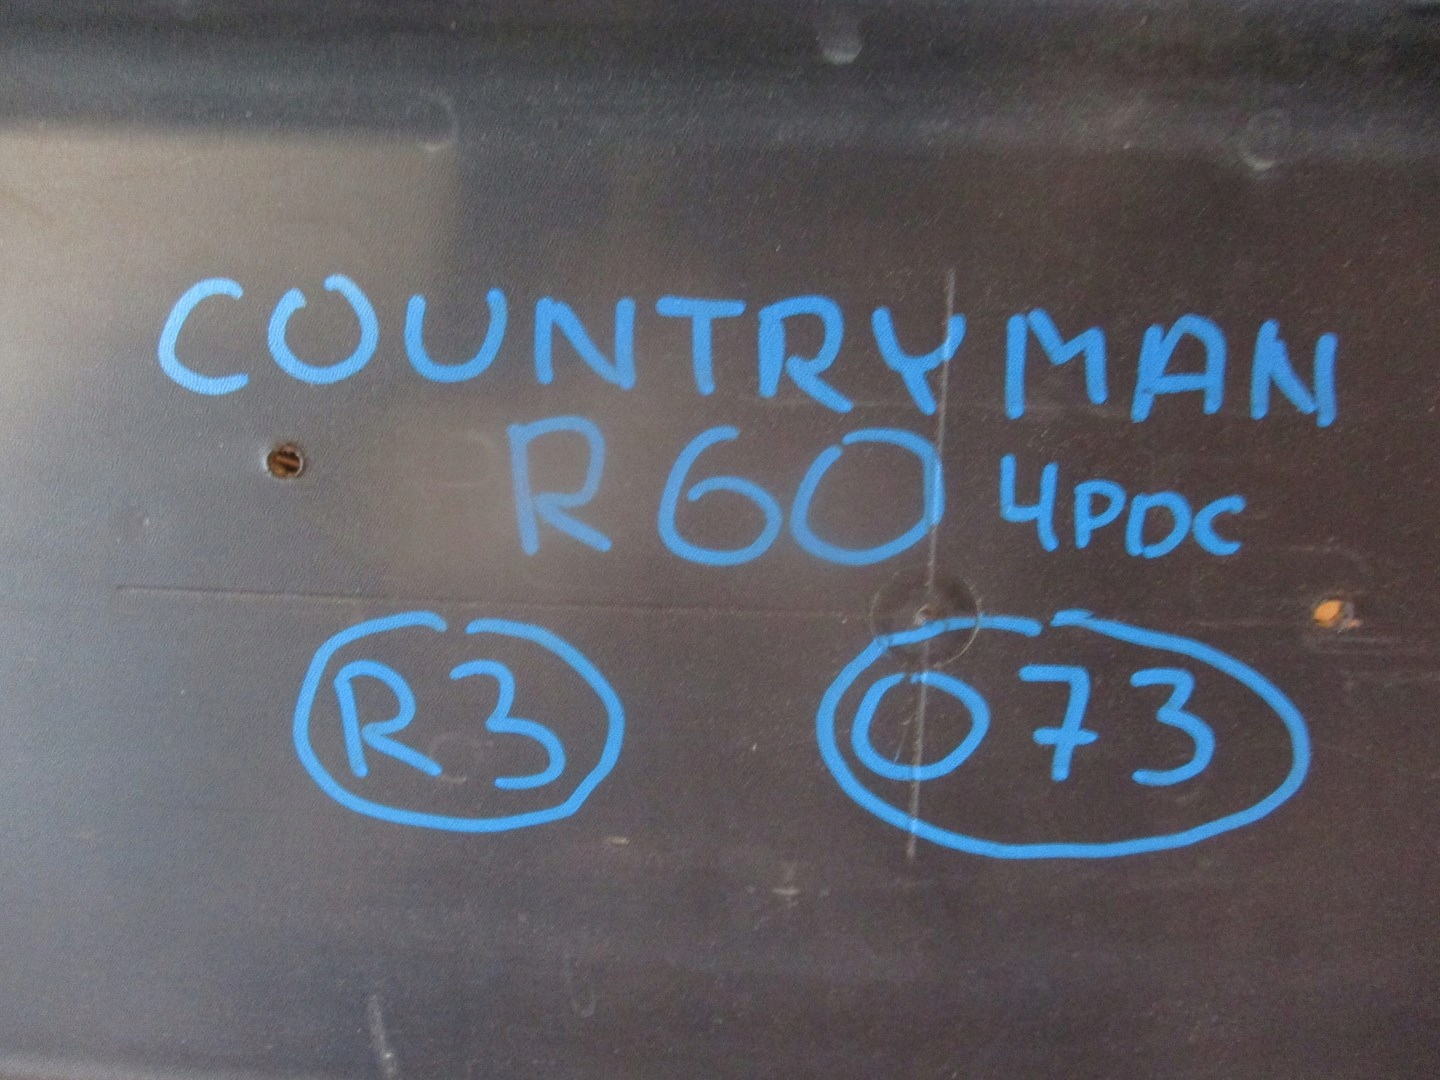 COUNTRYMAN
R60 4PDC
R3 073